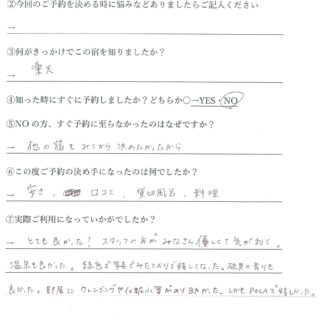 ②今回のご予約を決める時に悩みなどありましたらご記入ください
→
③何がきっかけでこの宿を知りましたか？
→ 楽天
④知った時にすぐに予約しましたか？どちらか○→YES・NO
⑤NOの方、すぐ予約に至らなかったのはなぜですか？
→ 他の宿もみてから決めたかったから
⑥この度ご予約の決め手になったのは何でしたか？
→ 安さ、口コミ、貸切風呂、料理
⑦実際ご利用になっていかがでしたか？
→ とても良かった！スタッフの方がみなさん優しくて気が利く。
温泉も良かった。緑色で写真でみたとおりで嬉しくなった。硫黄の香りも
良かった。部屋にクレンジングや化粧水等があり助かった。しかもPOLAで嬉しかった。